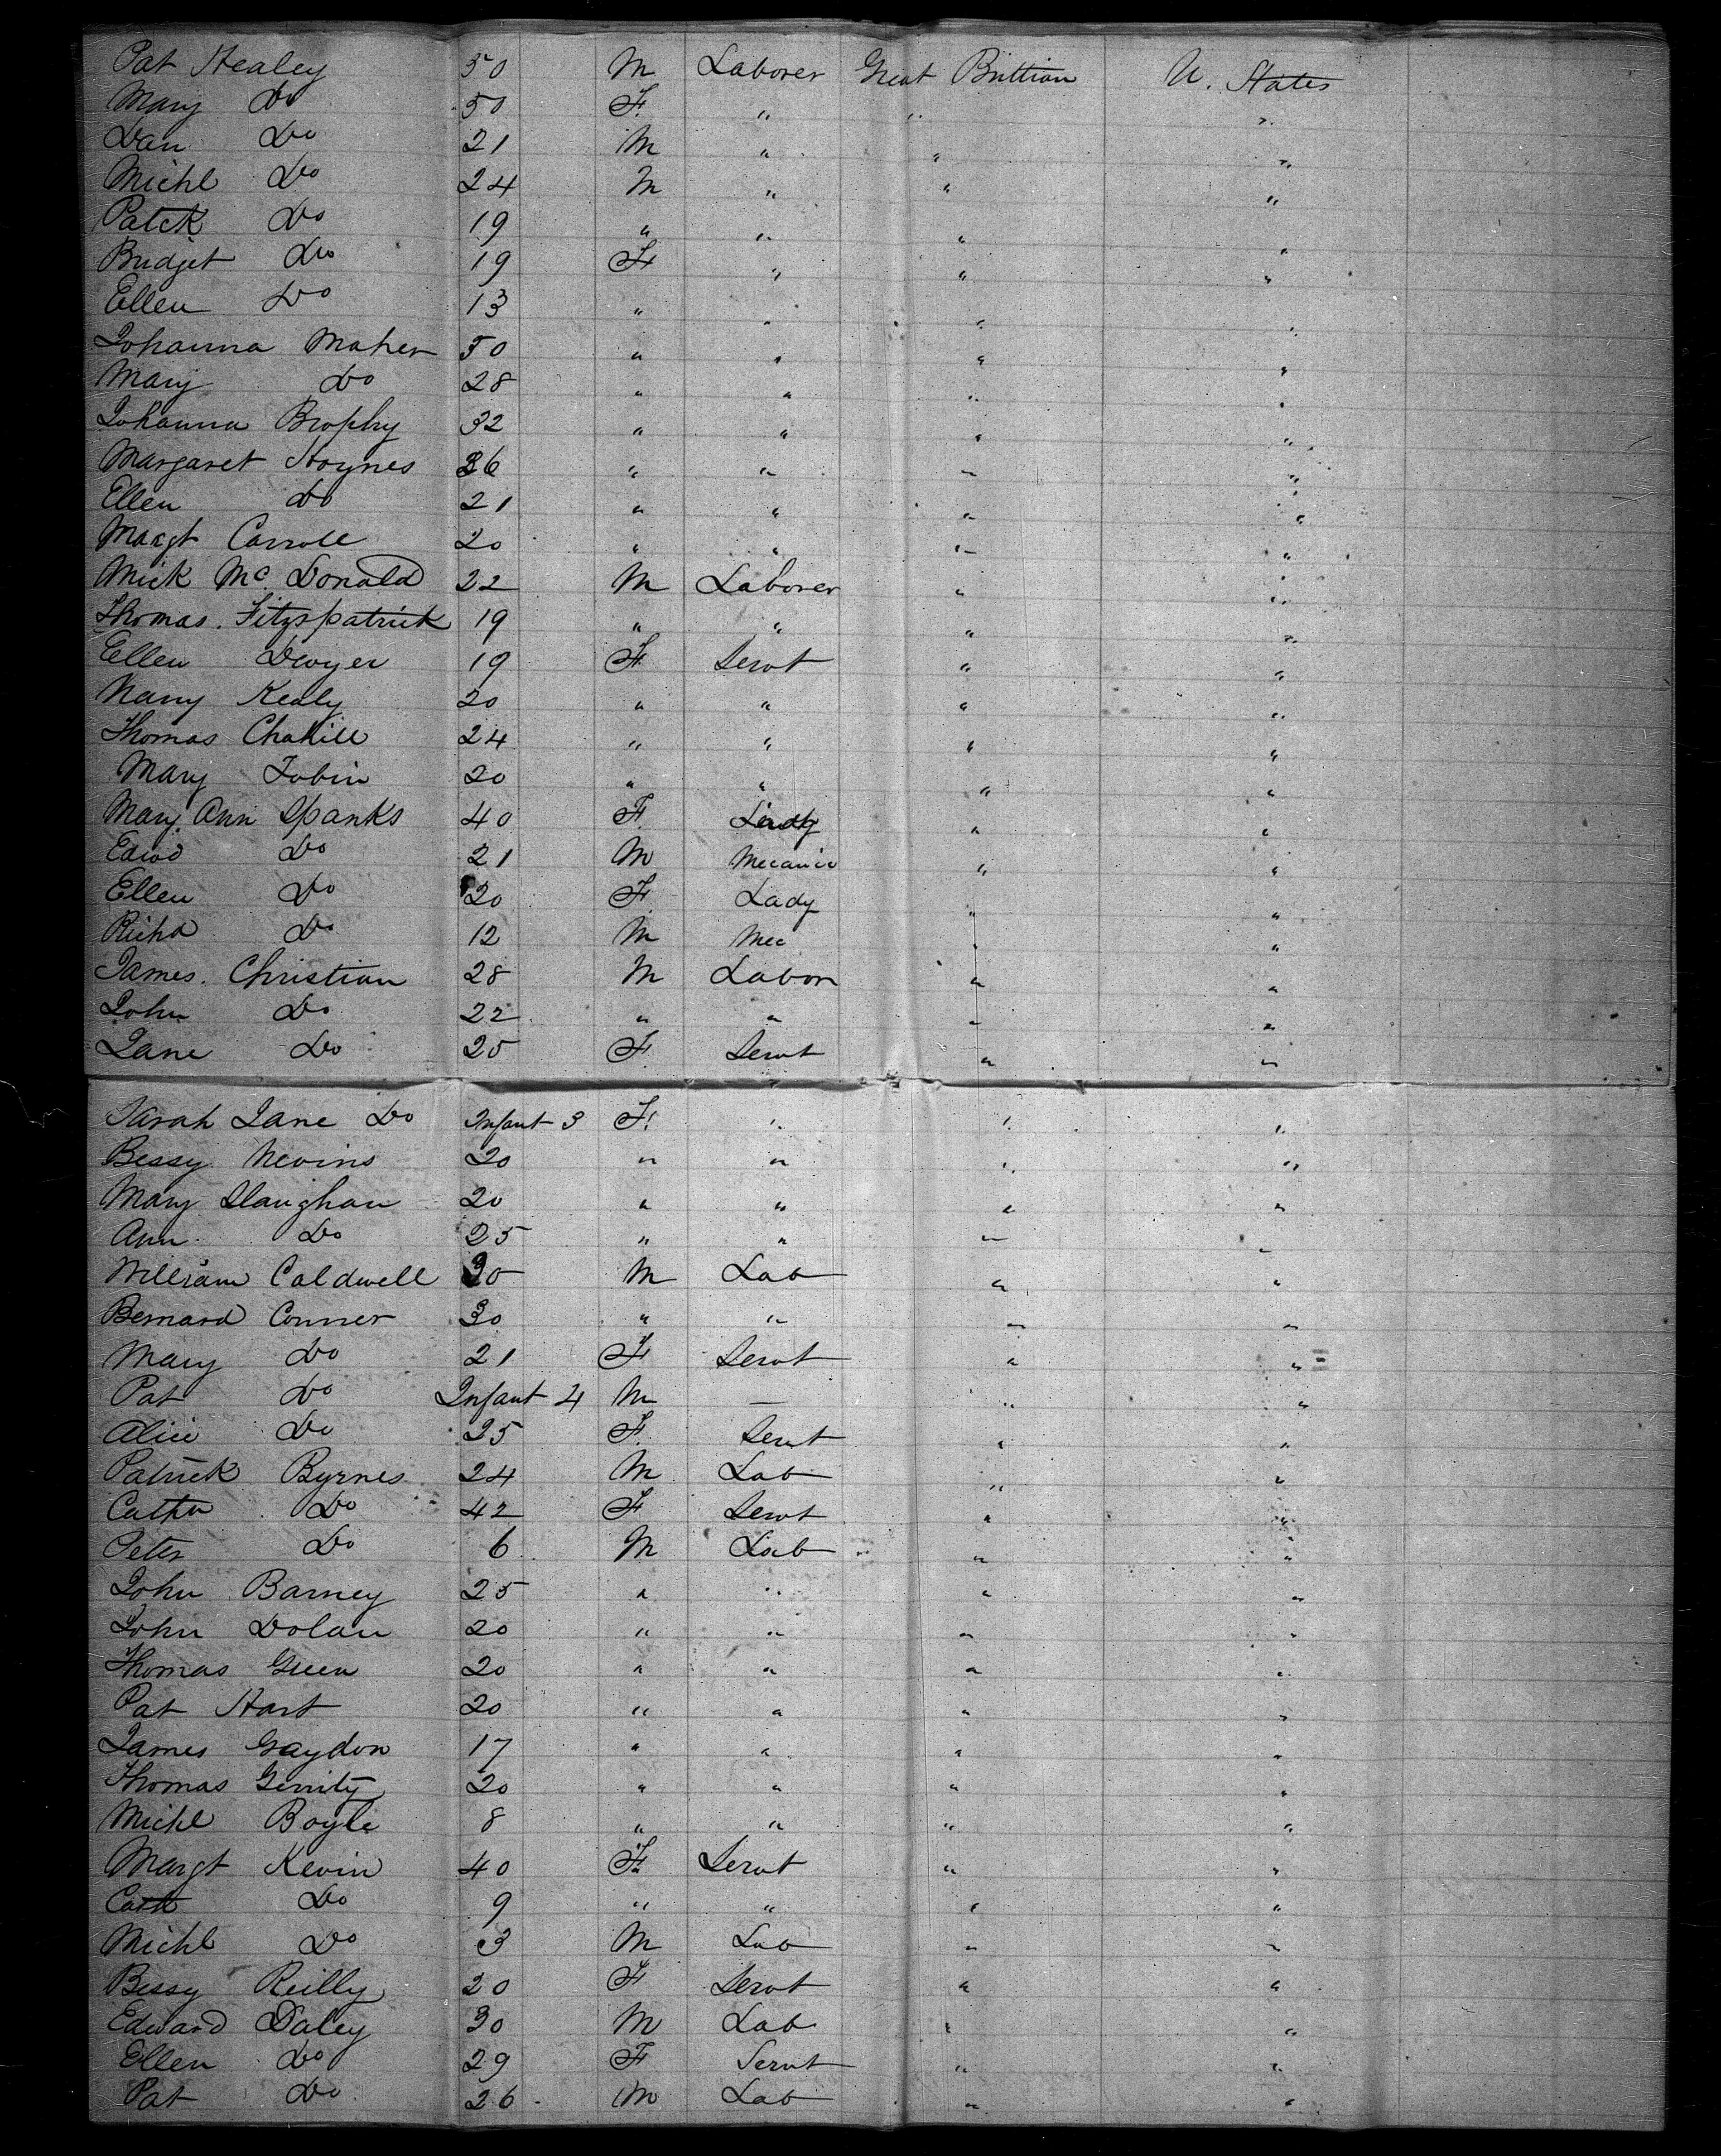 Pat Healey 50 M Laborer Great Brittian U. States
Mary Do 50 F " " "
Dan Do 21 M " " "
Michl Do 24 M " " "
Patck Do 19 " " " "
Bridget Do 19 F " " "
Ellen Do 13 " " " "
Johanna Maher 50 " " " "
Mary Do 28 " " " "
Johanna Brophy 32 " " " "
Margaret Hoynes 36 " " " "
Ellen Do 21 " " " "
Margt Carroll 20 " " " "
Mick Mc Donald 22 M Laborer " "
Thomas Fitzspatrick 19 " " " "
Ellen Dwyer 19 F Servt " "
Nany Kealy 20 " " " "
Thomas Chahill 24 " " " "
Mary Tobin 20 " " " "
Mary Ann Spanks 40 F Lady " "
Edwd Do 21 M Mecanic " "
Ellen Do 20 F Lady " "
Richd Do 12 M Mec " "
James Christian 28 M Labor " "
John Do 22 " " " "
Jane Do 25 F Servt " "
Sarah Jane Do Infant 3 F " " "
Bessy Nevins 20 " " " "
Mary Slaughan 20 " " " "
Ann Do 25 " " " "
William Caldwell 30 M Lab " "
Bernard Conner 30 " " " "
Mary Do 21 F Servt " "
Pat Do Infant 4 M — " "
Alice Do 25 F Servt " "
Patrick Byrnes 24 M Lab " "
Cathn Do 42 F Servt " "
Peter Do 6 M Lab " "
John Barney 25 " " " "
John Dolan 20 " " " "
Thomas Green 20 " " " "
Pat Hart 20 " " " "
James Graydon 17 " " " "
Thomas Gerrity 20 " " " "
Michl Boyle 8 " " " "
Margt Kevin 40 F Servt " "
Cath Do 9 " " " "
Michl Do 3 M Lab " "
Bessy Reilly 20 F Servt " "
Edward Daley 30 M Lab " "
Ellen Do 29 F Servt " "
Pat Do 26 M Lab " "